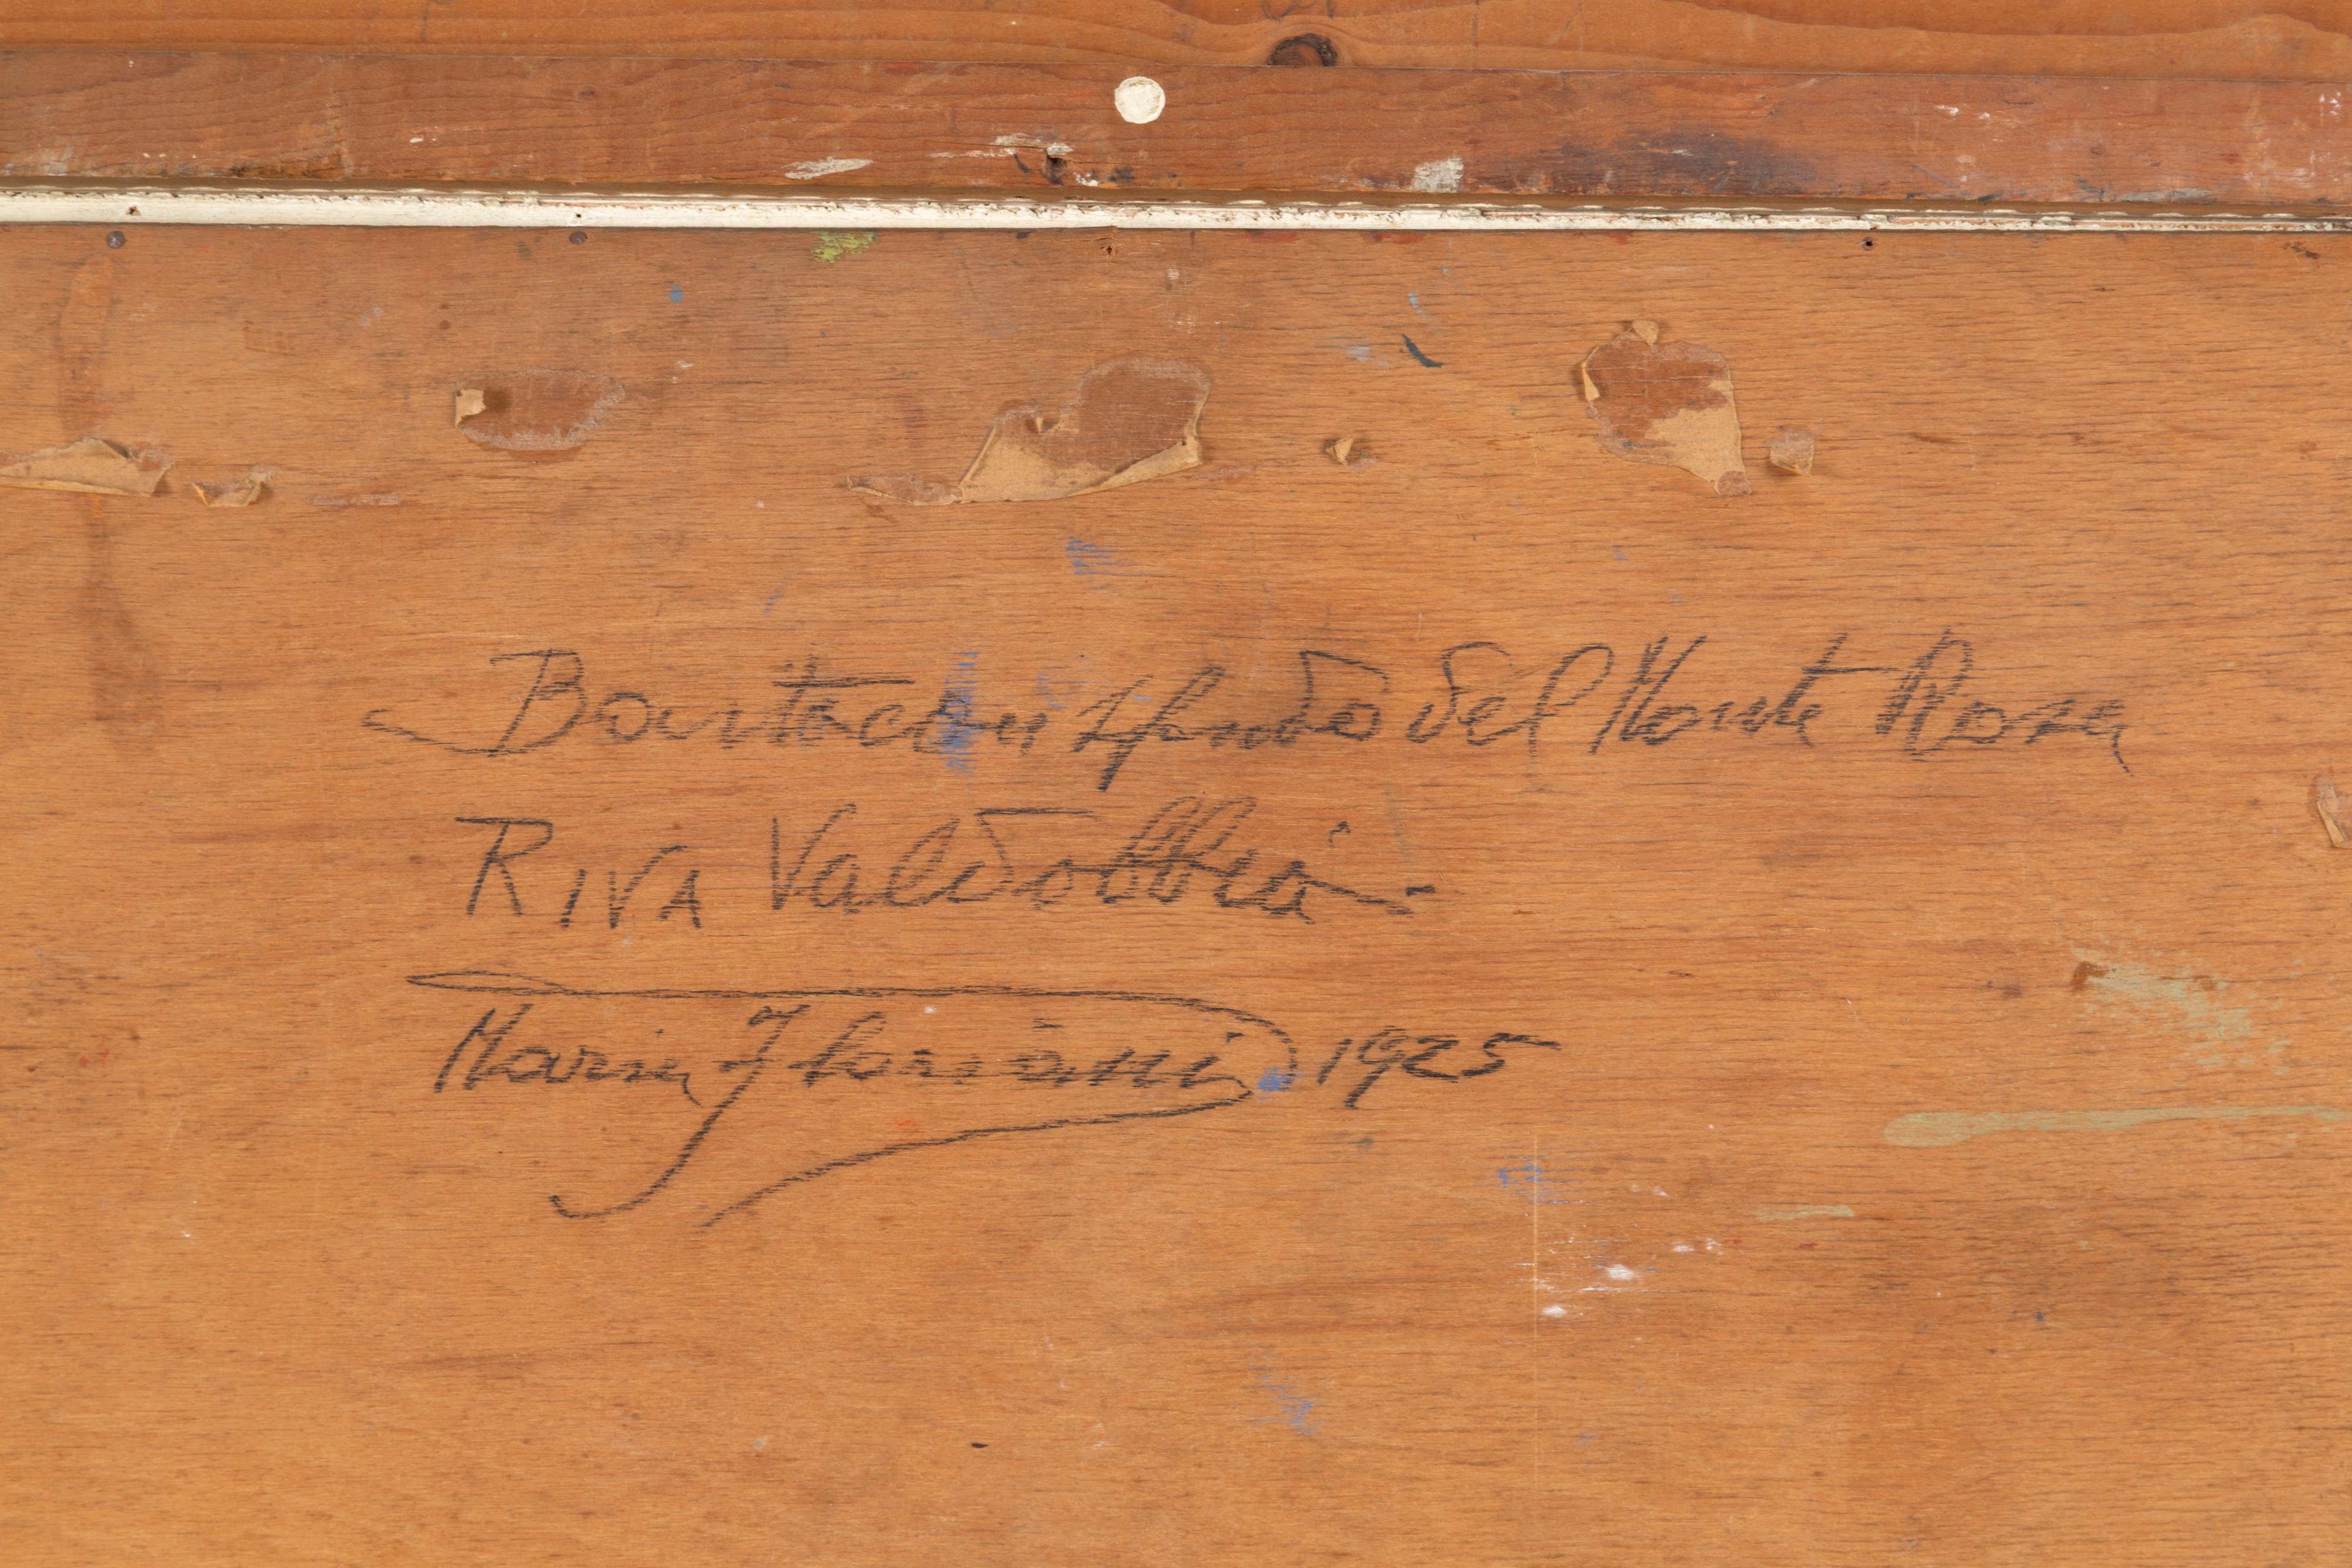 sfondo del Monte Rosa
RIVA Valdobbia
Maria Floriani 1925